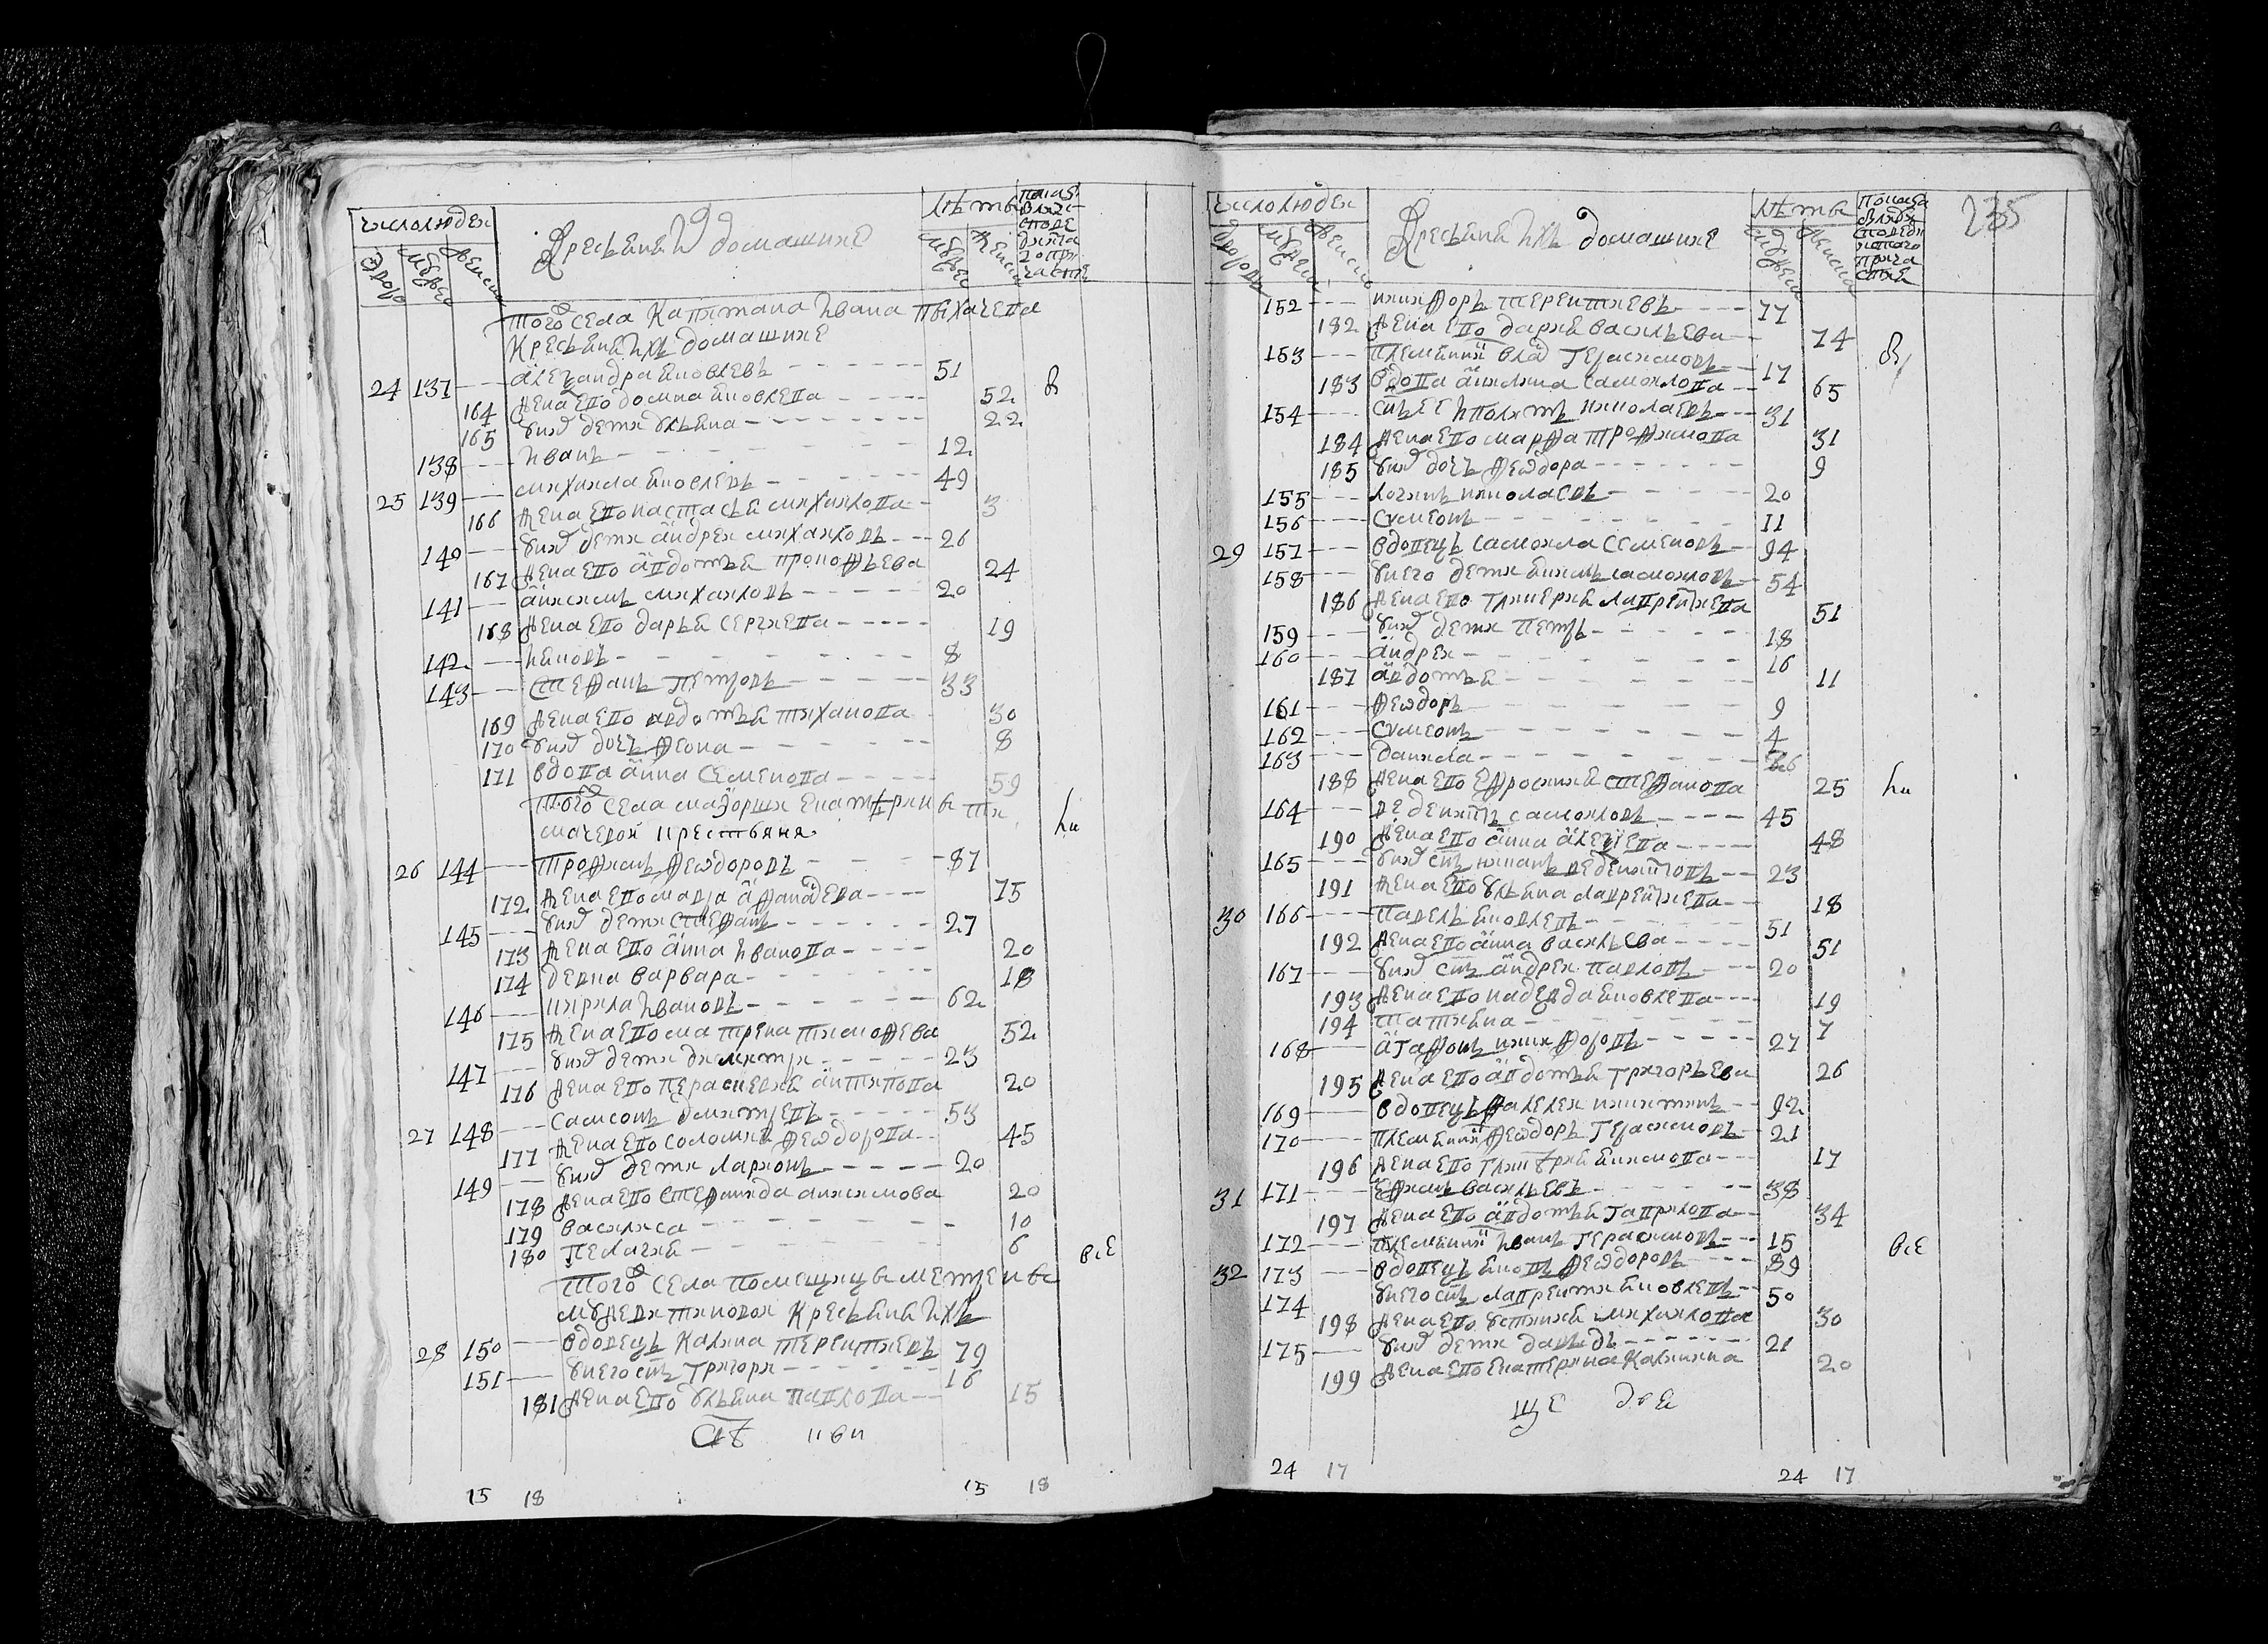 число людей
Дворо
мужес
женски
Крестьяня Их домашние
лѣтъ
мужес
женски
показ вляс споведи святаго причастие
Того села Капитана Ивана Пыхачева
Крестьяня Ихъ домашние
24 137 Алеѯандра Яковлевъ 51
164 Жена Ево домна Яковлева 52
165 Уних дети Ульяна 22
138 Иванъ 12
25 139 михаила Яковлевъ 49
166 Жена Ево настасья михаилова 3
140 Уних дети андреи михаиловъ 26
167 Жена Ево авдотья прокофьева 24
141 михаиловъ 20
168 Жена Ево дарья Сергиева 19
142 Яковъ 8
143 Стефанъ Петровъ 33
169 Жена Ево авдотья тиханова 30
170 Уних дочь 8
171 вдова анна Семенова 59
Того Села маиорши Екатерины
мачевой крестьяня
26 144 Трофимъ Феѡдоровъ 87
172 Жена Ево марфа 75
145 Уних дети Стефанъ 27
173 Жена Ево анна Иванова 20
174 девка варвара 18
146 кирила Ивановъ 62
175 Жена Ево матрена тимофева 52
147 Уних дети димитри 23
176 Жена Ево Парасковья антипова 20
27 148 Самсонъ димитревъ 53
177 Жена Ево Соломия Феѡдорова 45
149 Уних дети Ларионъ 20
178 Жена Ево Степанида анисимова 20
179 василиса 10
180 Пелагия 6
все
Того Села помещицы
Крестьяня Ихъ
28 150 вдовецъ Калина терентиевъ 79
151 Унего снъ григори 16
181 Жена Ево Ульяна Павлова 15
15 18 15 18
число людей
дворовъ
мужеска
женска
Крестьяня Ихъ домашние
лѣтъ
мужеска
женска
235
152 никифоръ терентиевъ 77
182 Жена Ево дария васильева 74
153 племянникъ влас Герасимовъ 17
183 вдова акилина самоилова 65
154 Снъ ЕЕ Иполитъ николаевъ 31
184 Жена Ево марфа трофимова 31
185 Уних дочь Феѡдора 9
155 логинъ николаевъ 20
156 Сѵмеонъ 11
29 157 вдовецъ самоила Семеновъ 94
158 Унего дети Якимъ самоиловъ 54
186 Жена Ево гликерия лаврентиева 51
159 Уних дети петръ 18
160 андреи 16
187 авдотья 11
161 Феѡдоръ 9
162 Сѵмеонъ 4
163 данила 26
188 Жена Ево Ефросиния Стефанова 25
164 самоиловъ 45
190 Жена Ево анна алеѯеева 48
165 Уних снъ 23
191 Жена Ево Ульяна лаврентиева 18
30 166 Павелъ Яковлевъ 51
192 Жена Ево анна васильева 51
167 Уних снъ андреи павловъ 20
193 Жена Ево надежда Яковлева 19
194 Татияна 7
168 агафонъ никифоровъ 27
195 Жена Ево авдотья григорьева 26
169 вдовецъ фалелеи никитинъ 92
170 племянникъ Феѡдоръ Герасимовъ 21
196 Жена Ево гликерия Якимова 17
31 171 Ефимъ васильевъ 38
197 Жена Ево авдотья гаврилова 34
172 племянникъ Иванъ Герасимовъ 15
все
32 173 вдовецъ Яковъ Феѡдоровъ 89
174 Унего снъ лаврентии Яковлевъ 50
198 Жена Ево устиния михаилова 30
175 Уних дети давыдъ 21
199 Жена Ево Екатерина Калинина 20
24 17 24 17